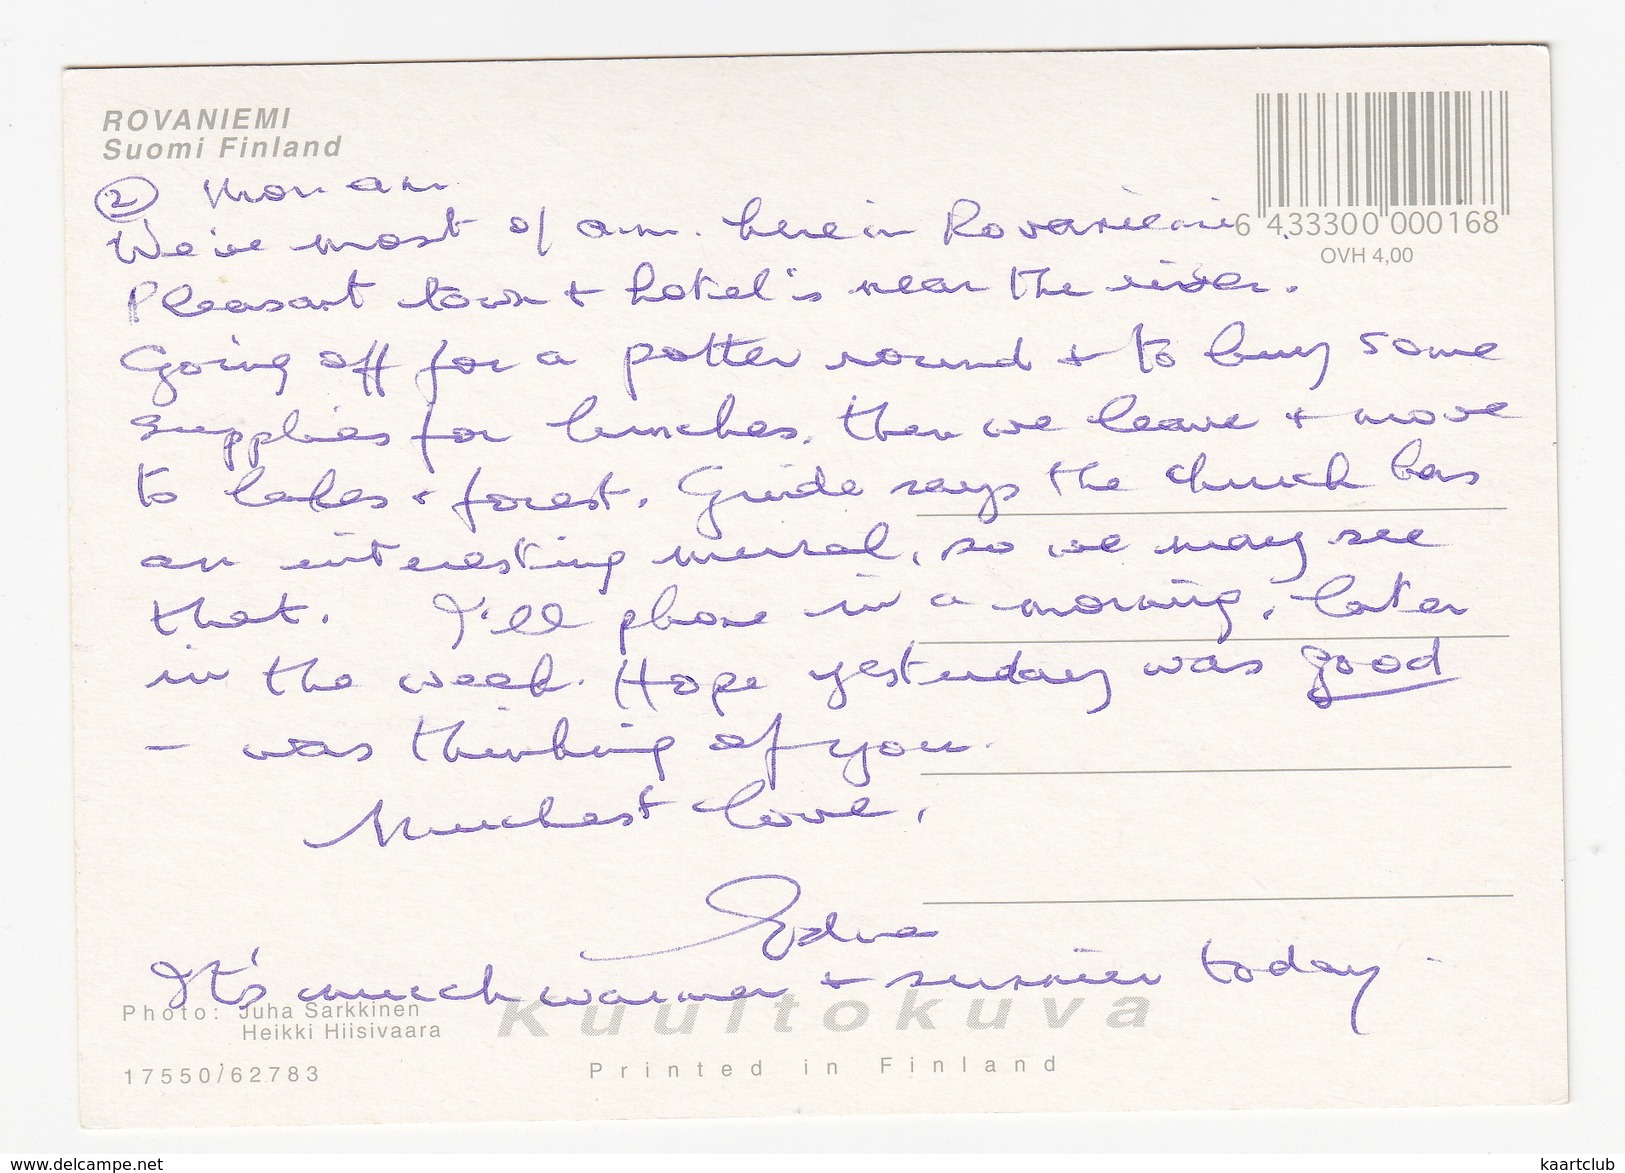 ROVANIEMI
Suomi Finland
② Mon am.
We've most of a.m. here in Rovaniemi.
6 433300 000168
OVH 4,00
Pleasant town + hotel's near the river.
Going off for a potter round + to buy some
supplies for lunches, then we leave + move
to lakes + forest. Guide says the church has
an interesting mural, so we may see
that. I'll phone in a morning, later
in the week. Hope yesterday was good
– was thinking of you.
Muchest love,
Edna
It's much warmer + sunnier today.
Photo: Juha Särkkinen
Heikki Hiisivaara
Kuultokuva
17550/62783
Printed in Finland
www.delcampe.net
kaartclub